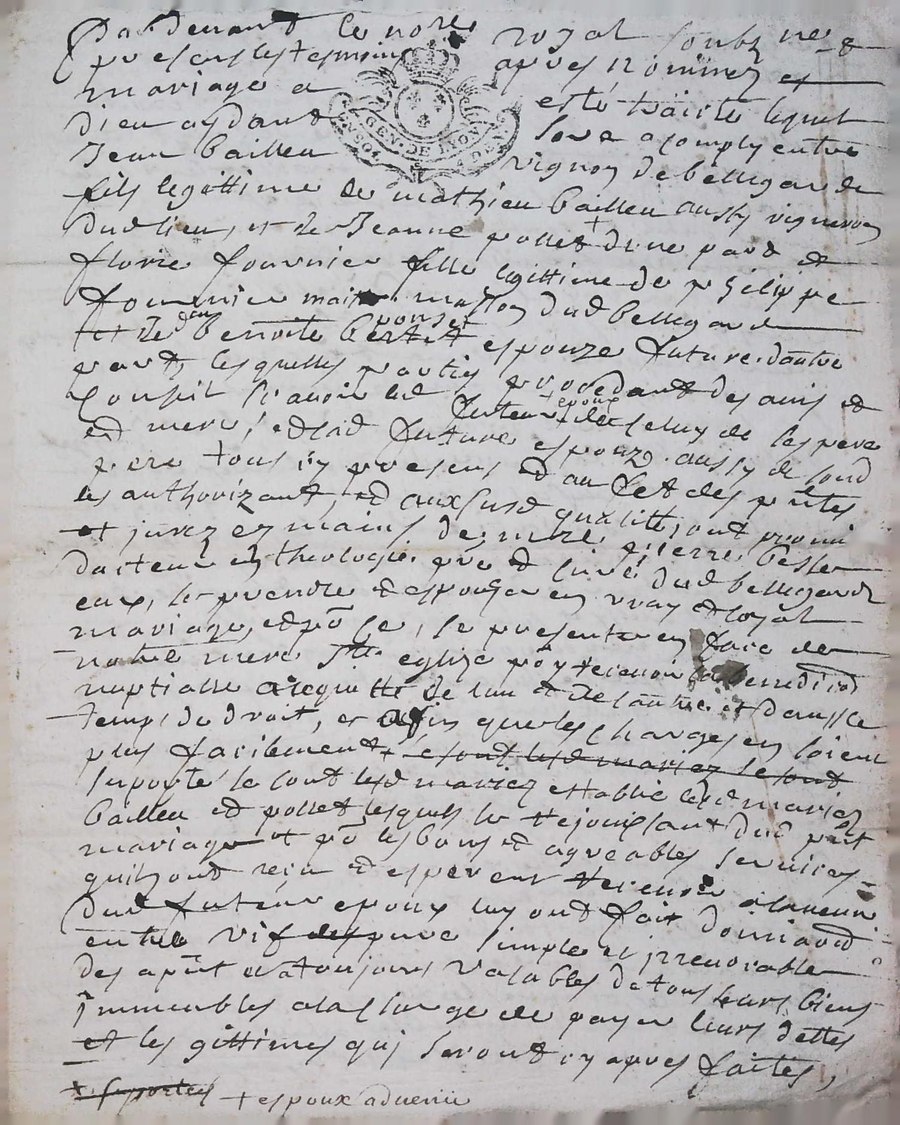 Pardevant le no.re royal soubz ne &
presens les tesmoins apres nommez et
mariage a esté traitté lequel
Dieu aydant sera acomply entre
Jean Bailleu vigron de bellegarde
fils legittime de mathieu bailleu aussy vigneron
dud lieu, et de Jeanne pollet dune part et
florie fournier fille legittime de philippe
fournier masson dud bellegarde
et de benoite ponset espouze future dautre
part, lesquelles parties procedant des avis et
conseil scavoir led futeur de celuy de ses pere
et mere, et lad future espouze aussy de sond
pere tous icy presens, et au fet des pntes
les authorizant, et aux susd qualités ont promis
et jurez ez mains de mre pierre besse
docteur en theologie pre et curé dud bellegarde
eux, se prendre et espouzer en vray et loyal
mariage, et po ce, se presenter en face de
notre mere Ste eglize po y recevoir la benediction
nuptialle a requette de lun et de lautre et dans le
temps de droit, et affin que les charges en soient
plus facilement + se sont lesd mariez se sont
suporté se sont lesd mariez estably lesd mariez
bailleu et pollet lesquels se rejouissant dud pnt
mariage et po les bons et agreables services
quils ont reçu et esperent recevoir a lavenir
dud futeur epoux luy ont fait donnaon
entre vif pure simple et irrevocable
des apnt et a toujours valables de tous leurs biens
immeubles a la charge de payer leurs dettes
et les gittimes qui seront cy apres faites,
+ suportées + espoux advenir
GEN. DE LYON